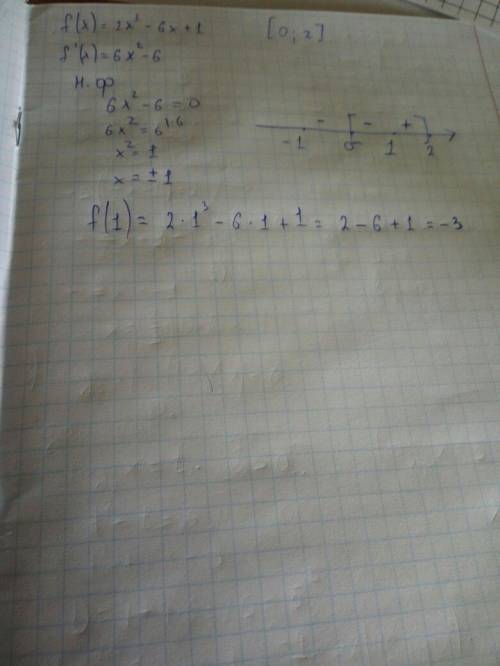 f(x) = 2x³ - 6x + 1 [0; 2]
f'(x) = 6x² - 6
н. ф
6x² - 6 = 0
6x² = 6 |:6
x² = 1
x = ± 1
- - +
-1 0 1 2
f(1) = 2 · 1³ - 6 · 1 + 1 = 2 - 6 + 1 = -3